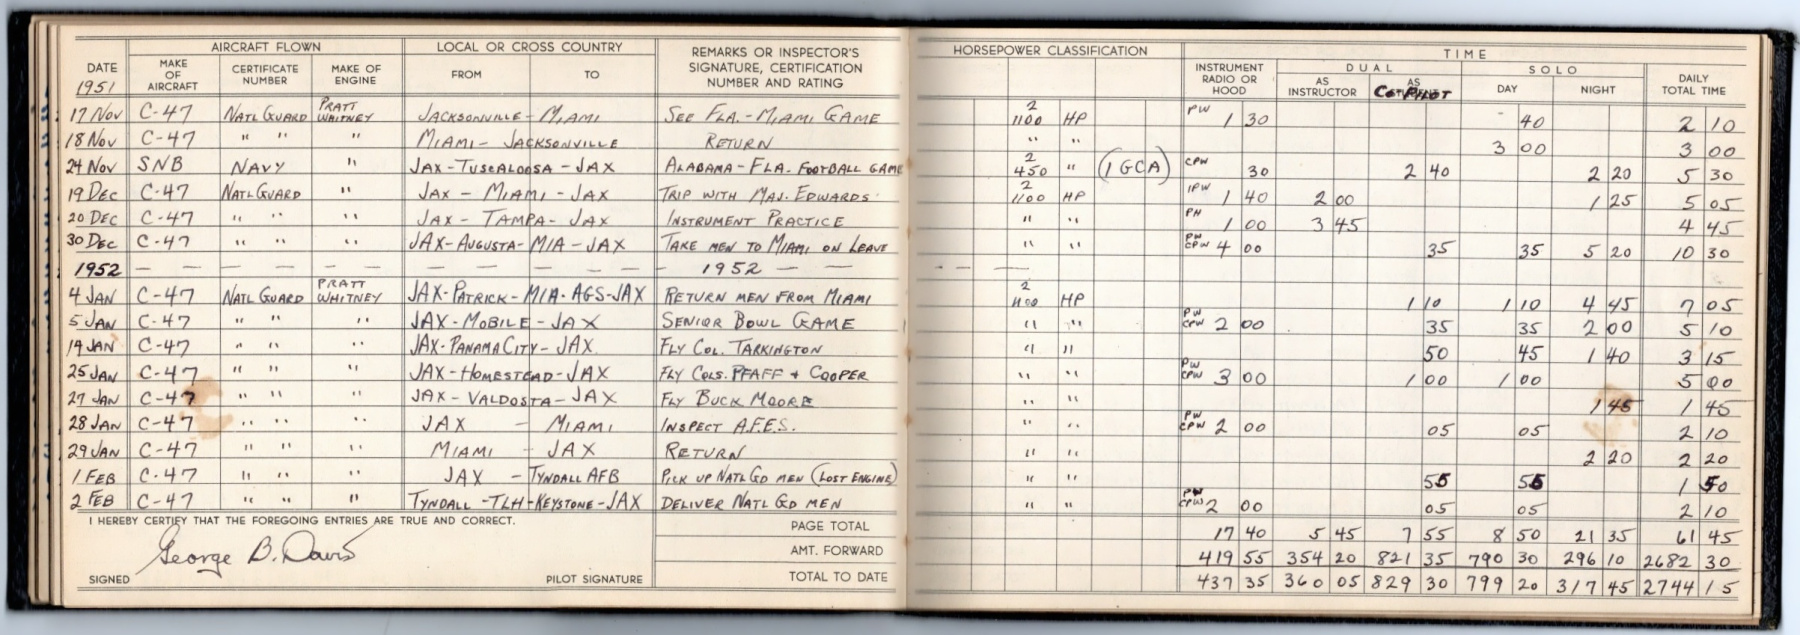 AIRCRAFT FLOWN LOCAL OR CROSS COUNTRY REMARKS OR INSPECTOR'S SIGNATURE, CERTIFICATION NUMBER AND RATING HORSEPOWER CLASSIFICATION TIME
DATE MAKE OF AIRCRAFT CERTIFICATE NUMBER MAKE OF ENGINE FROM TO INSTRUMENT RADIO OR HOOD DUAL SOLO DAILY TOTAL TIME
1951 AS INSTRUCTOR AS CO-PILOT DAY NIGHT
17 NOV C-47 NATL GUARD PRATT WHITNEY JACKSONVILLE - MIAMI SEE FLA. - MIAMI GAME 2 1100 HP PW 1 30 40 2 10
18 NOV C-47 " " " MIAMI - JACKSONVILLE RETURN " " 3 00 3 00
24 NOV SNB NAVY " JAX - TUSCALOOSA - JAX ALABAMA - FLA. FOOTBALL GAME 2 450 " (1 GCA) CPW 30 2 40 2 20 5 30
19 DEC C-47 NATL GUARD " JAX - MIAMI - JAX TRIP WITH MAJ. EDWARDS 2 1100 HP IPW 1 40 2 00 1 25 5 05
20 DEC C-47 " " " JAX - TAMPA - JAX INSTRUMENT PRACTICE " " PH 1 00 3 45 4 45
30 DEC C-47 " " " JAX - AUGUSTA - MIA - JAX TAKE MEN TO MIAMI ON LEAVE " " PW CPW 4 00 35 35 5 20 10 30
1952 — — — — — — — — — — 1952 — — — — —
4 JAN C-47 NATL GUARD PRATT WHITNEY JAX - PATRICK - MIA - AGS - JAX RETURN MEN FROM MIAMI 2 1100 HP 1 10 1 10 4 45 7 05
5 JAN C-47 " " " JAX - MOBILE - JAX SENIOR BOWL GAME " " PW CPW 2 00 35 35 2 00 5 10
19 JAN C-47 " " " JAX - PANAMA CITY - JAX FLY COL. TARKINGTON " " 50 45 1 40 3 15
25 JAN C-47 " " " JAX - HOMESTEAD - JAX FLY COLS. PFAFF + COOPER " " PW CPW 3 00 1 00 1 00 5 00
27 JAN C-47 " " " JAX - VALDOSTA - JAX FLY BUCK MOORE " " 1 45 1 45
28 JAN C-47 " " " JAX - MIAMI INSPECT A.F.E.S. " " PW CPW 2 00 05 05 2 10
29 JAN C-47 " " " MIAMI - JAX RETURN " " 2 20 2 20
1 FEB C-47 " " " JAX - TYNDALL AFB PICK UP NATL GD MEN (LOST ENGINE) " " 55 55 1 50
2 FEB C-47 " " " TYNDALL - TLH - KEYSTONE - JAX DELIVER NATL GD MEN " " PW CPW 2 00 05 05 2 10
I HEREBY CERTIFY THAT THE FOREGOING ENTRIES ARE TRUE AND CORRECT. PAGE TOTAL 17 40 5 45 7 55 8 50 21 35 61 45
George B. Davis AMT. FORWARD 419 55 354 20 821 35 790 30 296 10 2682 30
SIGNED PILOT SIGNATURE TOTAL TO DATE 437 35 360 05 829 30 799 20 317 45 2744 15